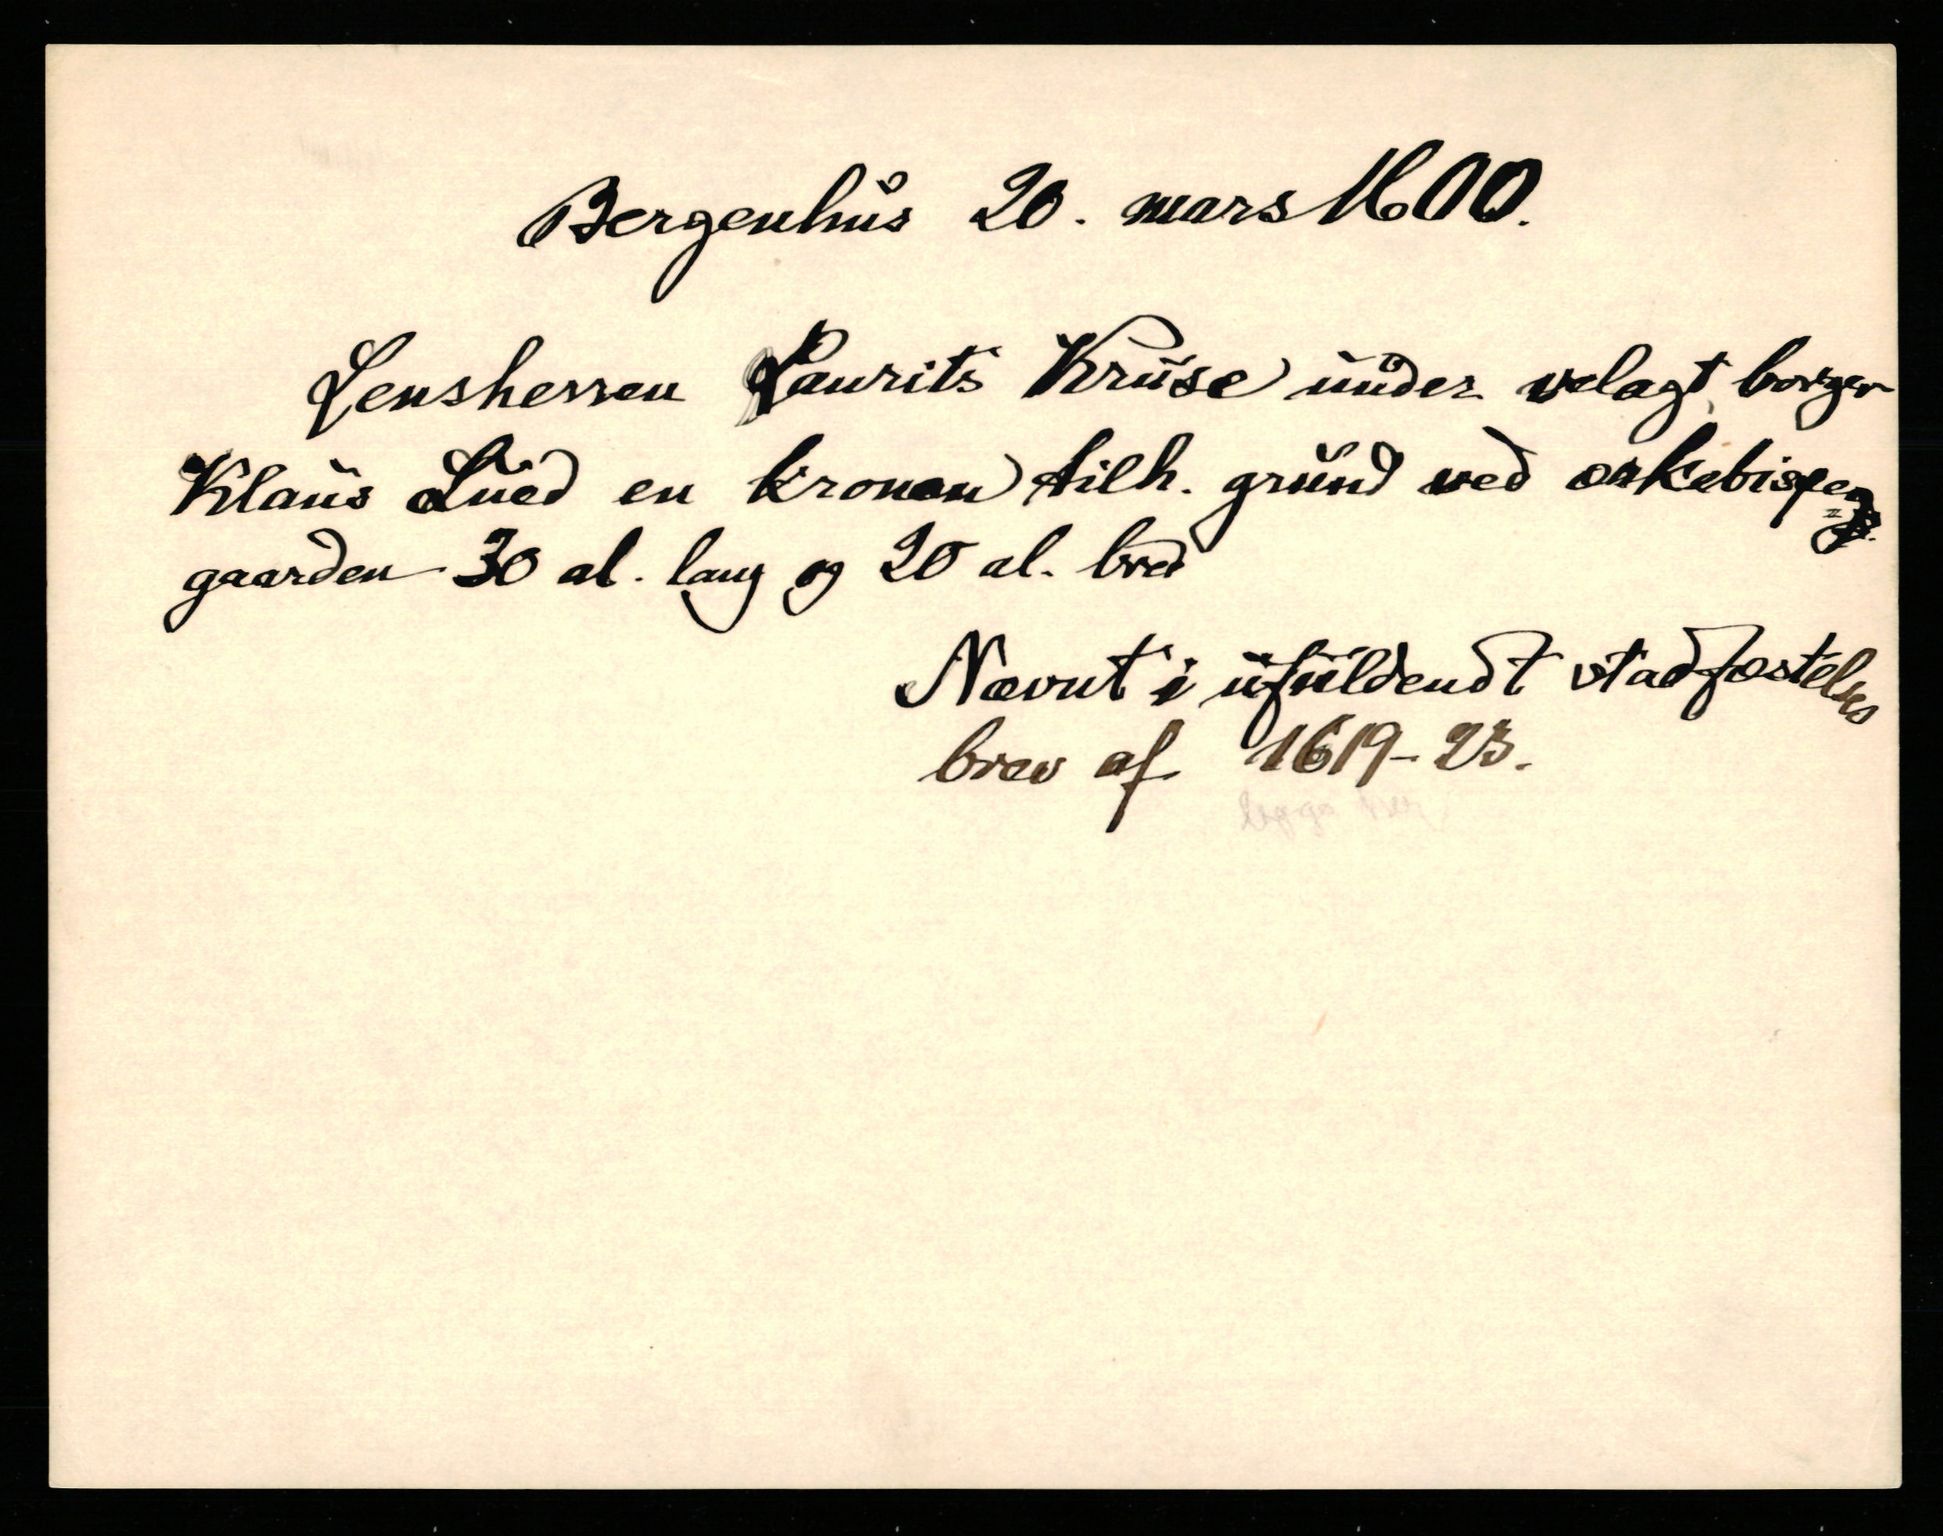 Bergenhus 20. mars 1600.
Lensherren Laurits Kruse under velagt borger
Klaus Lued en kronen tilh. grund ved erkebispe=
gaarden 30 al. lang og 20 al. bred
Nævnt i ufuldendt stadfæstelses
brev af 1619-23.